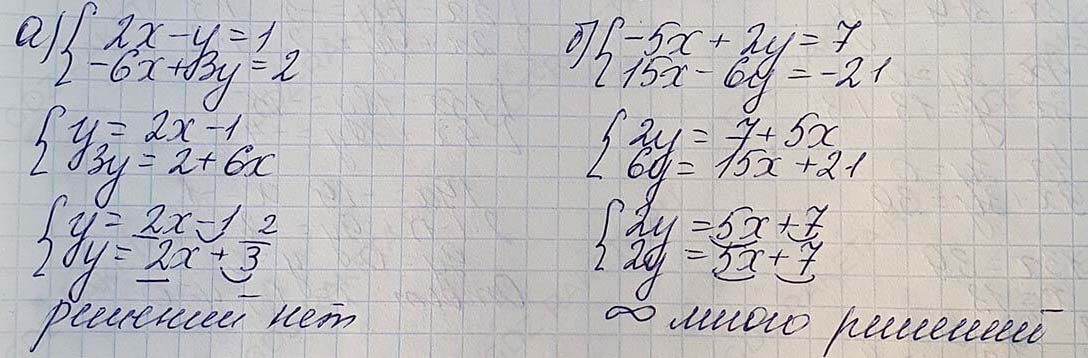 а) { 2x - y = 1
{ -6x + 3y = 2
{ y = 2x - 1
{ 3y = 2 + 6x
{ y = 2x - 1
{ y = 2x + 2/3
решений нет
б) { -5x + 2y = 7
{ 15x - 6y = -21
{ 2y = 7 + 5x
{ 6y = 15x + 21
{ 2y = 5x + 7
{ 2y = 5x + 7
∞ много решений